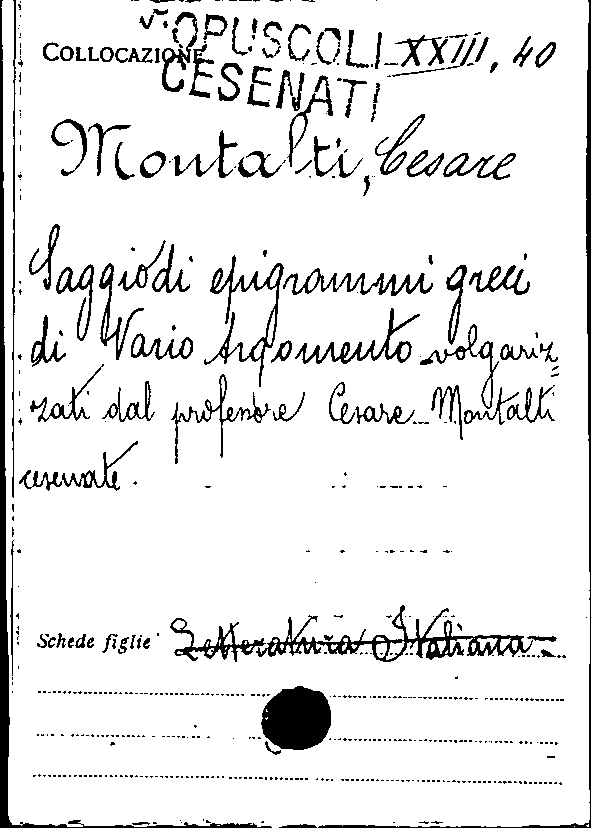 COLLOCAZIONE OPUSCOLI XXIII, 40
CESENATI
Montalti, Cesare
Saggio di epigrammi greci
di Vario Argomento volgariz=
zati dal professore Cesare Montalti
cesenate.
Schede figlie Letteratura Italiana